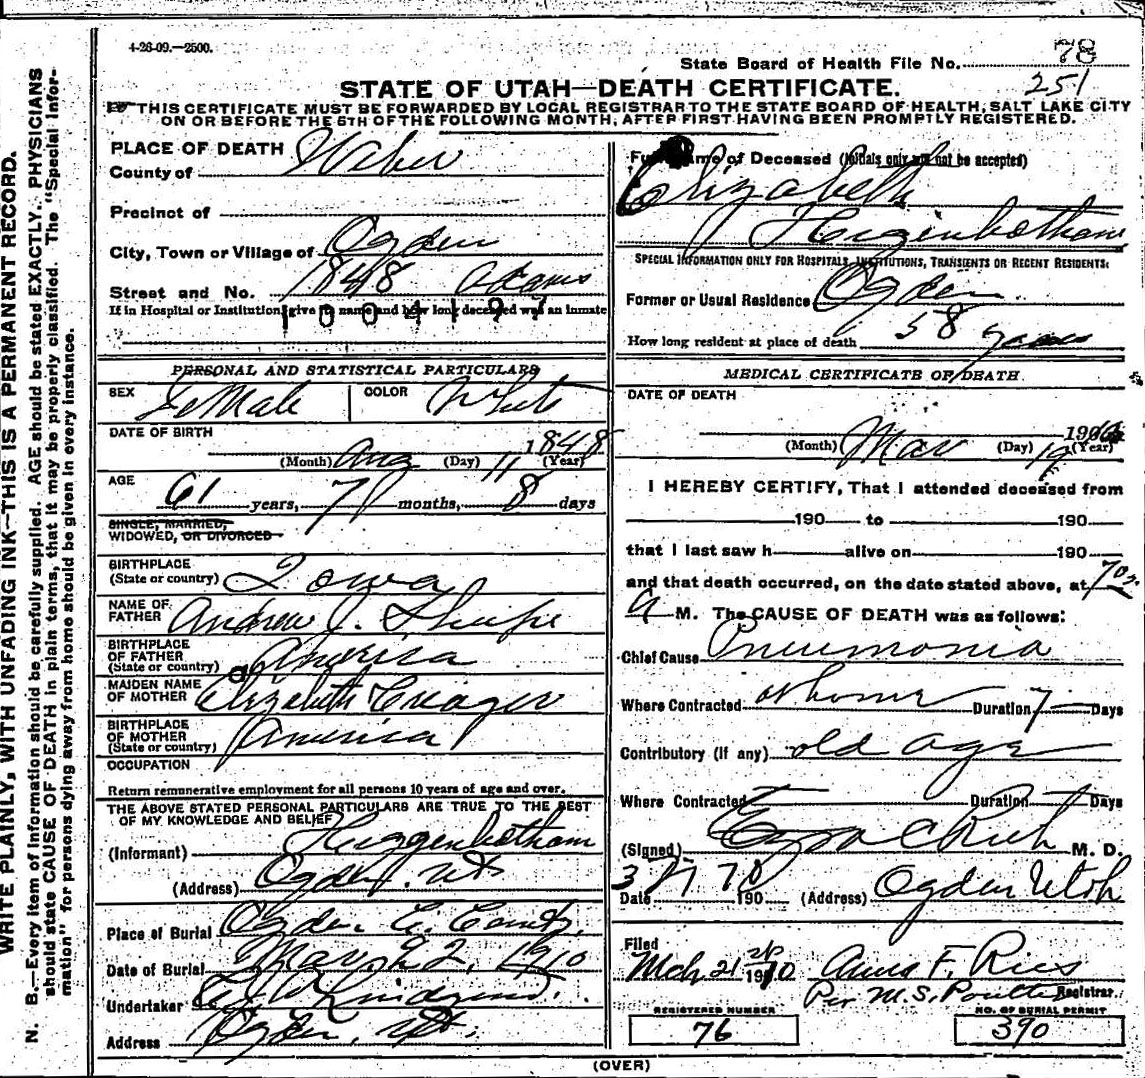 4-26-09.—2500.
78
State Board of Health File No.
251
STATE OF UTAH—DEATH CERTIFICATE.
THIS CERTIFICATE MUST BE FORWARDED BY LOCAL REGISTRAR TO THE STATE BOARD OF HEALTH, SALT LAKE CITY
ON OR BEFORE THE 5TH OF THE FOLLOWING MONTH, AFTER FIRST HAVING BEEN PROMPTLY REGISTERED.
WRITE PLAINLY, WITH UNFADING INK—THIS IS A PERMANENT RECORD.
N. B.—Every item of information should be carefully supplied. AGE should be stated EXACTLY. PHYSICIANS
should state CAUSE OF DEATH in plain terms, that it may be properly classified. The "Special Infor-
mation" for persons dying away from home should be given in every instance.
PLACE OF DEATH
County of Weber
Precinct of
City, Town or Village of Ogden
Street and No. 1848 Adams
If in Hospital or Institution, give its name and how long deceased was an inmate
1004197
PERSONAL AND STATISTICAL PARTICULARS
SEX Female COLOR White
DATE OF BIRTH
(Month) Aug (Day) 11 1848 (Year)
AGE
61 years, 7 months, 8 days
SINGLE, MARRIED,
WIDOWED, OR DIVORCED
BIRTHPLACE
(State or country) Iowa
NAME OF
FATHER Andrew J. Shupe
BIRTHPLACE
OF FATHER
(State or country) America
MAIDEN NAME
OF MOTHER Elizabeth Creager
BIRTHPLACE
OF MOTHER
(State or country) America
OCCUPATION
Return remunerative employment for all persons 10 years of age and over.
THE ABOVE STATED PERSONAL PARTICULARS ARE TRUE TO THE BEST
OF MY KNOWLEDGE AND BELIEF
(Informant) Higgenbotham
(Address) Ogden, Ut
Place of Burial Ogden C.
Date of Burial Mar 22, 1910
Undertaker Lindquist
Address Ogden, Ut.
Full Name of Deceased (Initials only will not be accepted)
Elizabeth
Higinbotham
SPECIAL INFORMATION ONLY FOR HOSPITALS, INSTITUTIONS, TRANSIENTS OR RECENT RESIDENTS:
Former or Usual Residence Ogden
How long resident at place of death 58 years
MEDICAL CERTIFICATE OF DEATH
DATE OF DEATH
(Month) Mar (Day) 19 (Year)
I HEREBY CERTIFY, That I attended deceased from
190 to 190
that I last saw h alive on 190
and that death occurred, on the date stated above, at 7
A M. The CAUSE OF DEATH was as follows:
Chief Cause Pneumonia
Where Contracted at home Duration 7 Days
Contributory (if any) old age
Where Contracted Duration Days
(Signed) Ezra C Rich M. D.
Date 190 (Address) Ogden Utah
Filed
Mch 21 1910 F. Ries
Per M. S. Poulter Registrar
REGISTERED NUMBER
76
NO. OF BURIAL PERMIT
390
(OVER)